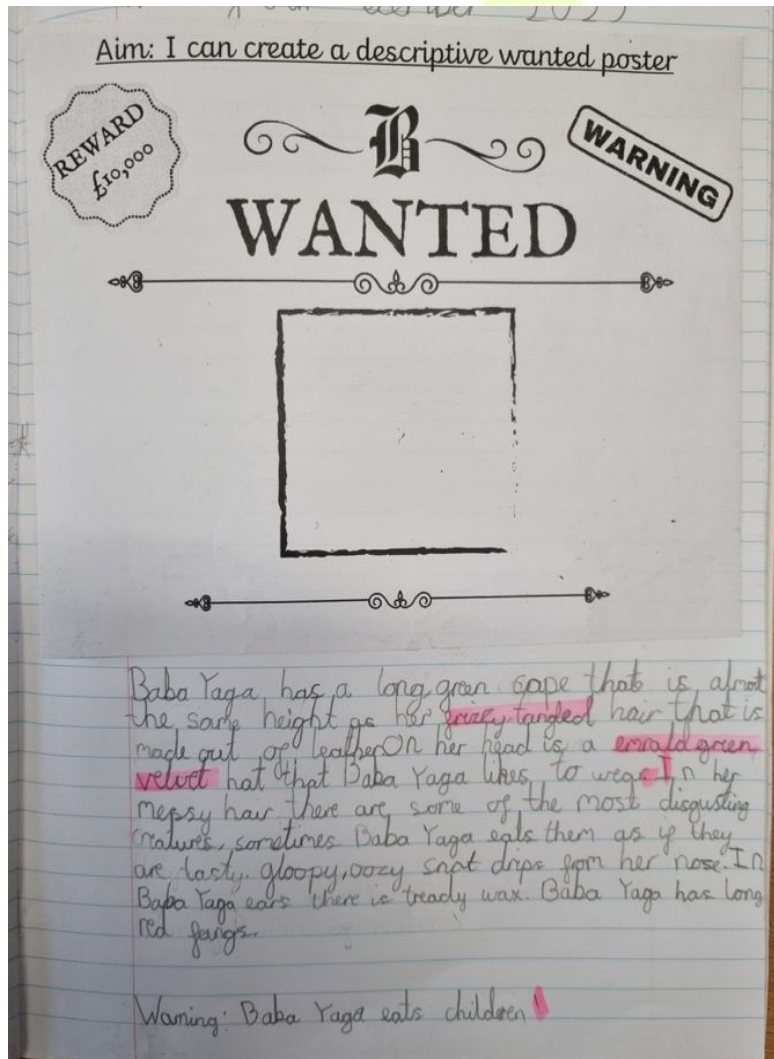 2023
Aim: I can create a descriptive wanted poster
REWARD
£10,000
B
WARNING
WANTED
Baba Yaga has a long green cape that is almost
the same height as her frizey, tangled hair that is
made out of leather. On her head is a emrald green,
velvet hat that Baba Yaga likes to wear. In her
messy hair there are some of the most disgusting
creatures, sometimes Baba Yaga eats them as if they
are tasty. gloopy, oozy snot drips from her nose. In
Baba Yaga ears there is treacly wax. Baba Yaga has long
red fangs.
Warning: Baba Yaga eats children!